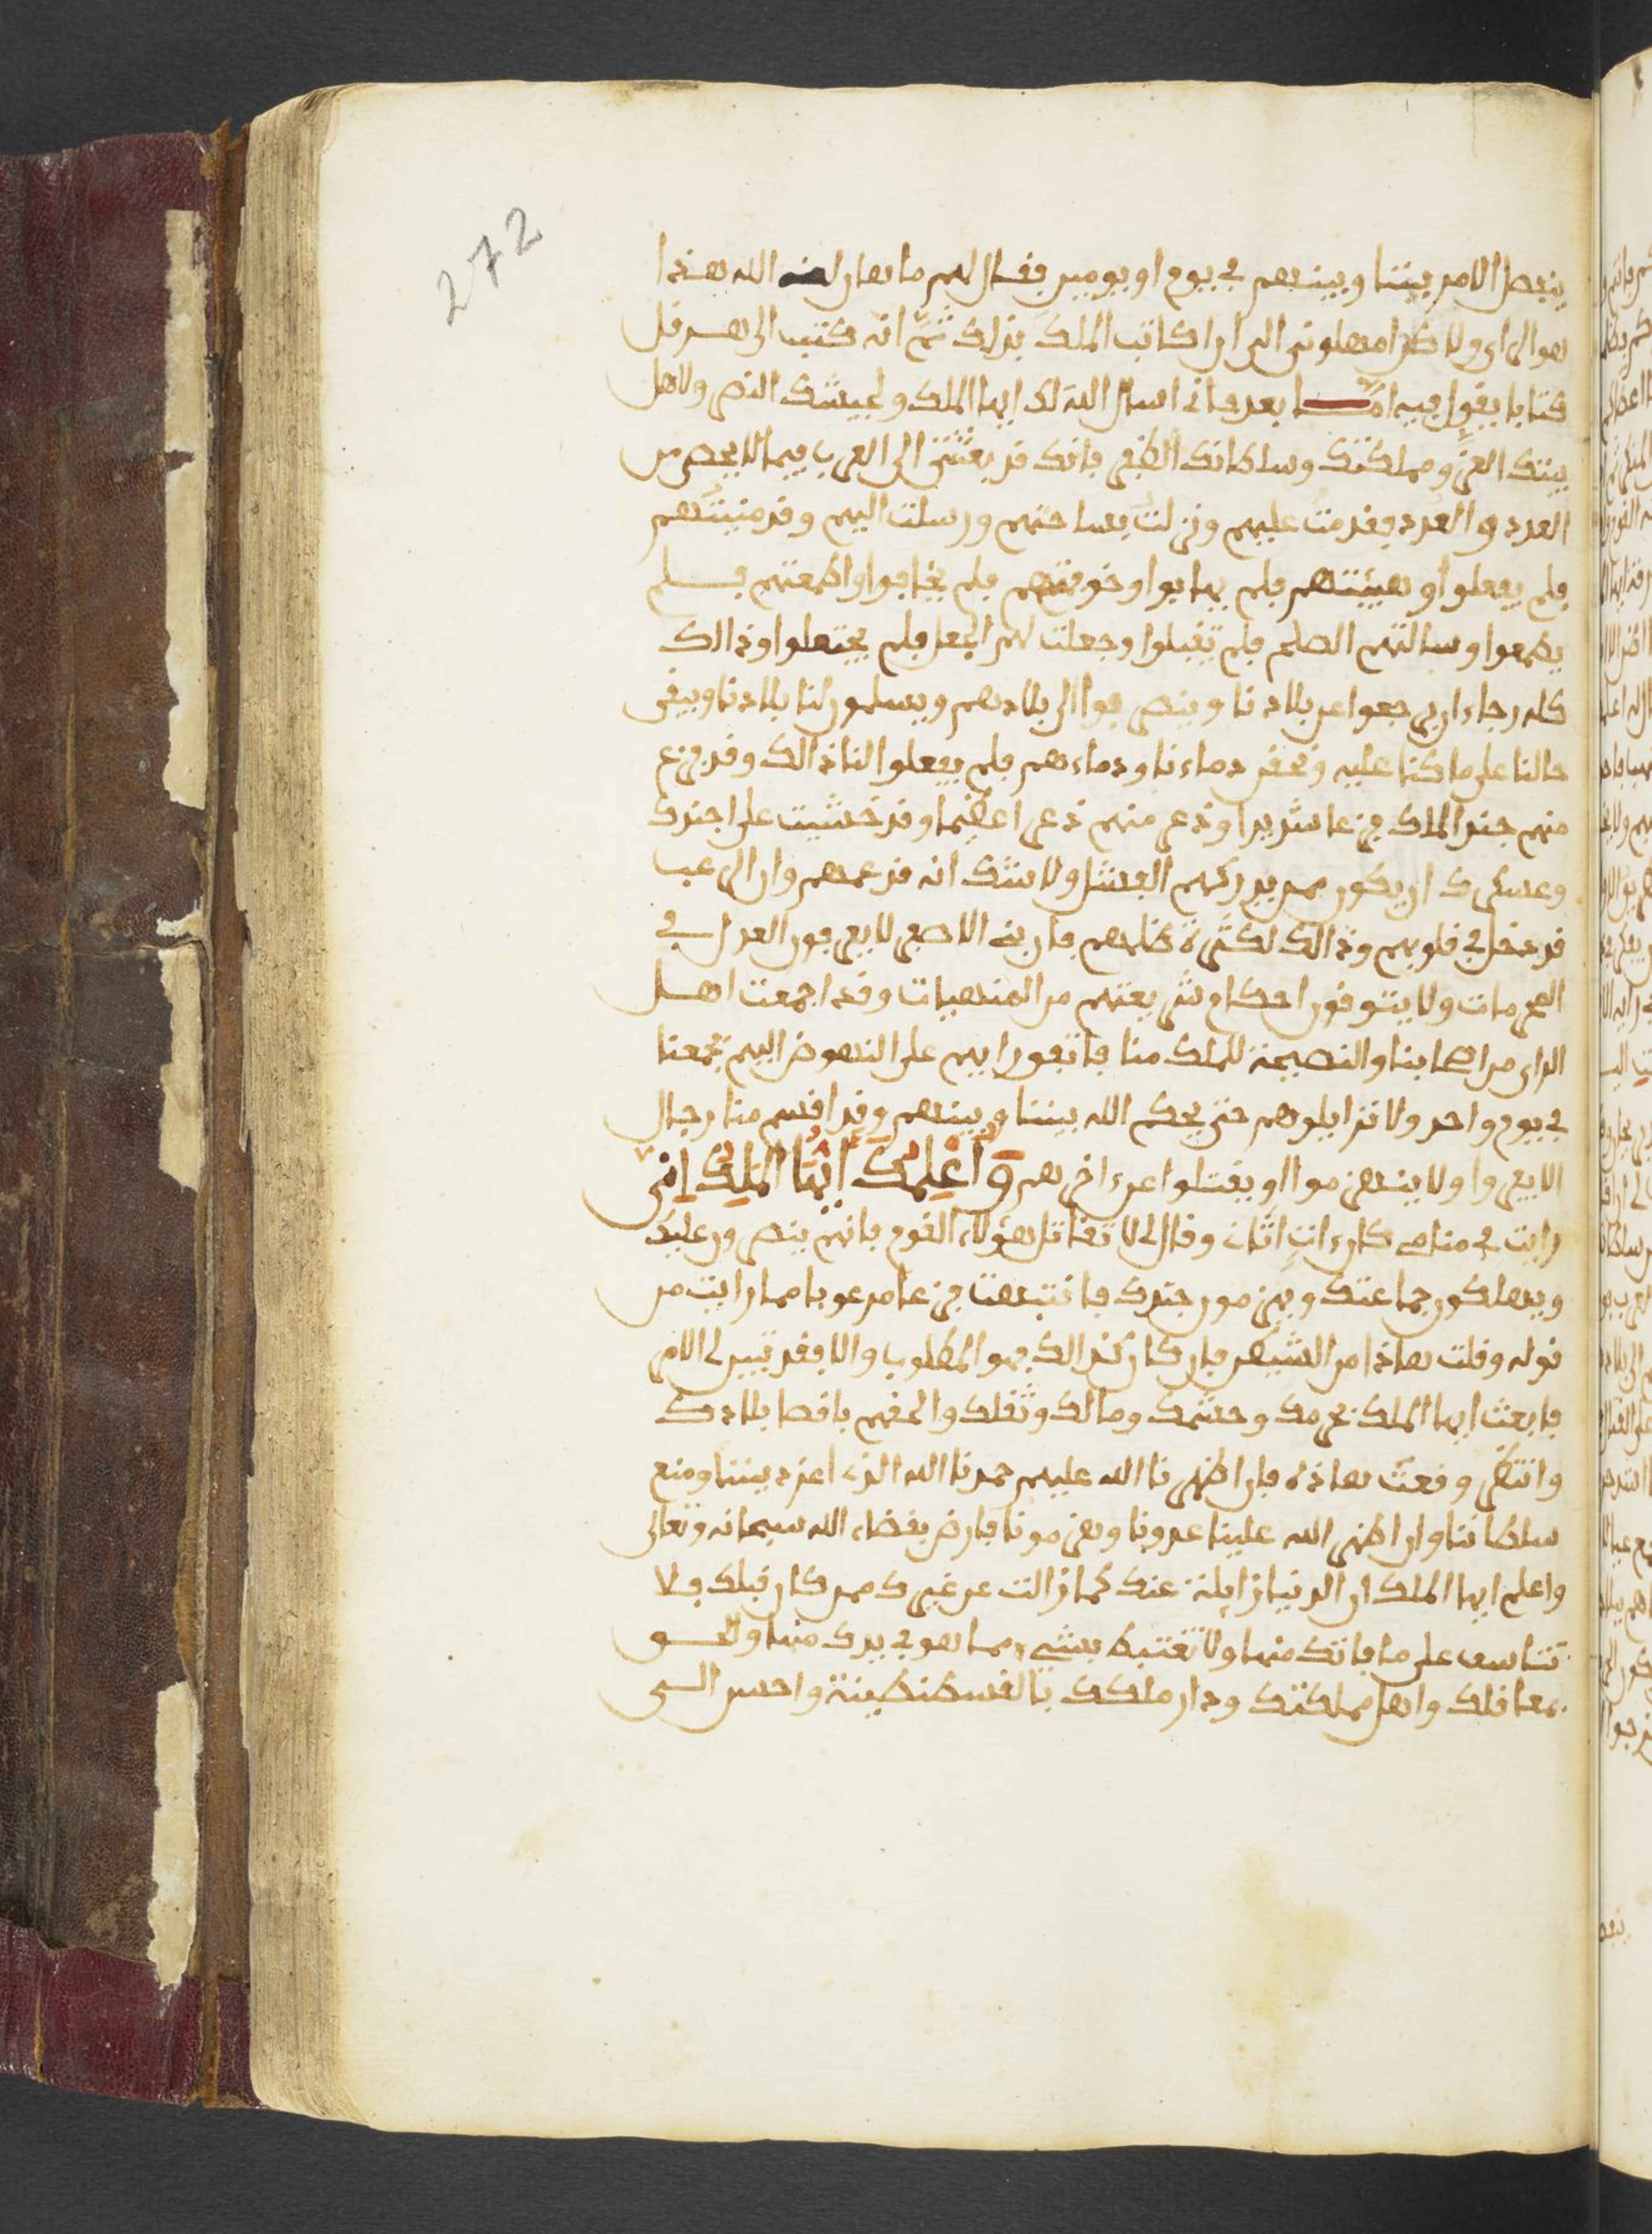 272
ينفصل الامر بيننا وبينهم في يوم او يومين فقال لهم ماهان لعنه الله هذا
هو الراى ولاكن امهلونى الى ان اكاتب الملك بذلك ثم انه كتب الى هرقل
كتابا يقول فيه اما بعد فانى اسال الله لك ايها الملك ولجيشك النصر ولاهل
بيتك العز ومملكتك وسلطانك الظفر فانك قد بعثتنى الى العرب فيما لا يحصى من
العدد والعدد فقدمت عليهم ونزلت بساحتهم ورسلت اليهم وقد منيتهم
فلم يفعلوا وهيبتهم فلم يهابوا وخوفتهم فلم يخافوا واطمعتهم فلم
يطمعوا وسالتهم الصلح فلم يقبلوا وجعلت لهم الجعل فلم يجتعلوا وذالك
كله رجاء ان يرجعوا عن بلادنا وينصرفوا الى بلادهم ويسلمون لنا بلادنا ويبقى
حالنا على ما كنا عليه ونحقن دماءنا ودماءهم فلم يفعلوا لنا ذالك وقد فزع
منهم جند الملك فزعا شديدا وذعر منهم ذعرا عظيما وقد خشيت على اجندك
وعسكرك ان يكون ممن يدركهم الفشل ولا شك انه قد عمهم وان الرعب
قد دخل في قلوبهم وذالك لكثرة ظلمهم فان بنى الاصفر لا يعرفون العدل في
الحرمات ولا يتوفون احكام شريعتهم من المنهيات وقد اجمعت اهل
الراى من اصحابنا والنصيحة للملك منا فاتفق رايهم على النهوض اليهم بجمعنا
في يوم واحد ولا نزايلوهم حتى يحكم الله بيننا وبينهم وقد اقسم منا رجال
الا يفروا ولا ينهزموا او يقتلوا عن ءاخرهم واعلمك ايها الملك انى
رايت في منامى كان ءات اتانى وقال لى لا تقاتل هؤلاء القوم فانهم ينصرون عليك
ويهلكون جماعتك ويهزمون جندك فانتبهت فزعا مرعوبا مما رايت من
قوله وقلت هاذا من الشيطان فان كان كذالك فهو المطلوب والا فقد تبين لى الامر
فابعث ايها الملك بحرمك وحشمك ومالك وثقلك والحقهم باقصا بلادك
وانتظر وقعت هاذه فان اظهرنا الله عليهم حمدنا الله الذى اعز ديننا ومنع
سلطاننا وان اظهر الله علينا عدونا وهزمونا فارض بقضاء الله سبحانه وتعالى
واعلم ايها الملك ان الدنيا زايلة عنك كما زالت عن غيرك ممن كان قبلك فلا
تتاسف على ما فاتك منها ولا تغتبط بشىء مما هو في يدك منها والحق
بمعاقلك واهل مملكتك ودار ملكك بالقسطنطينة واحسن الى